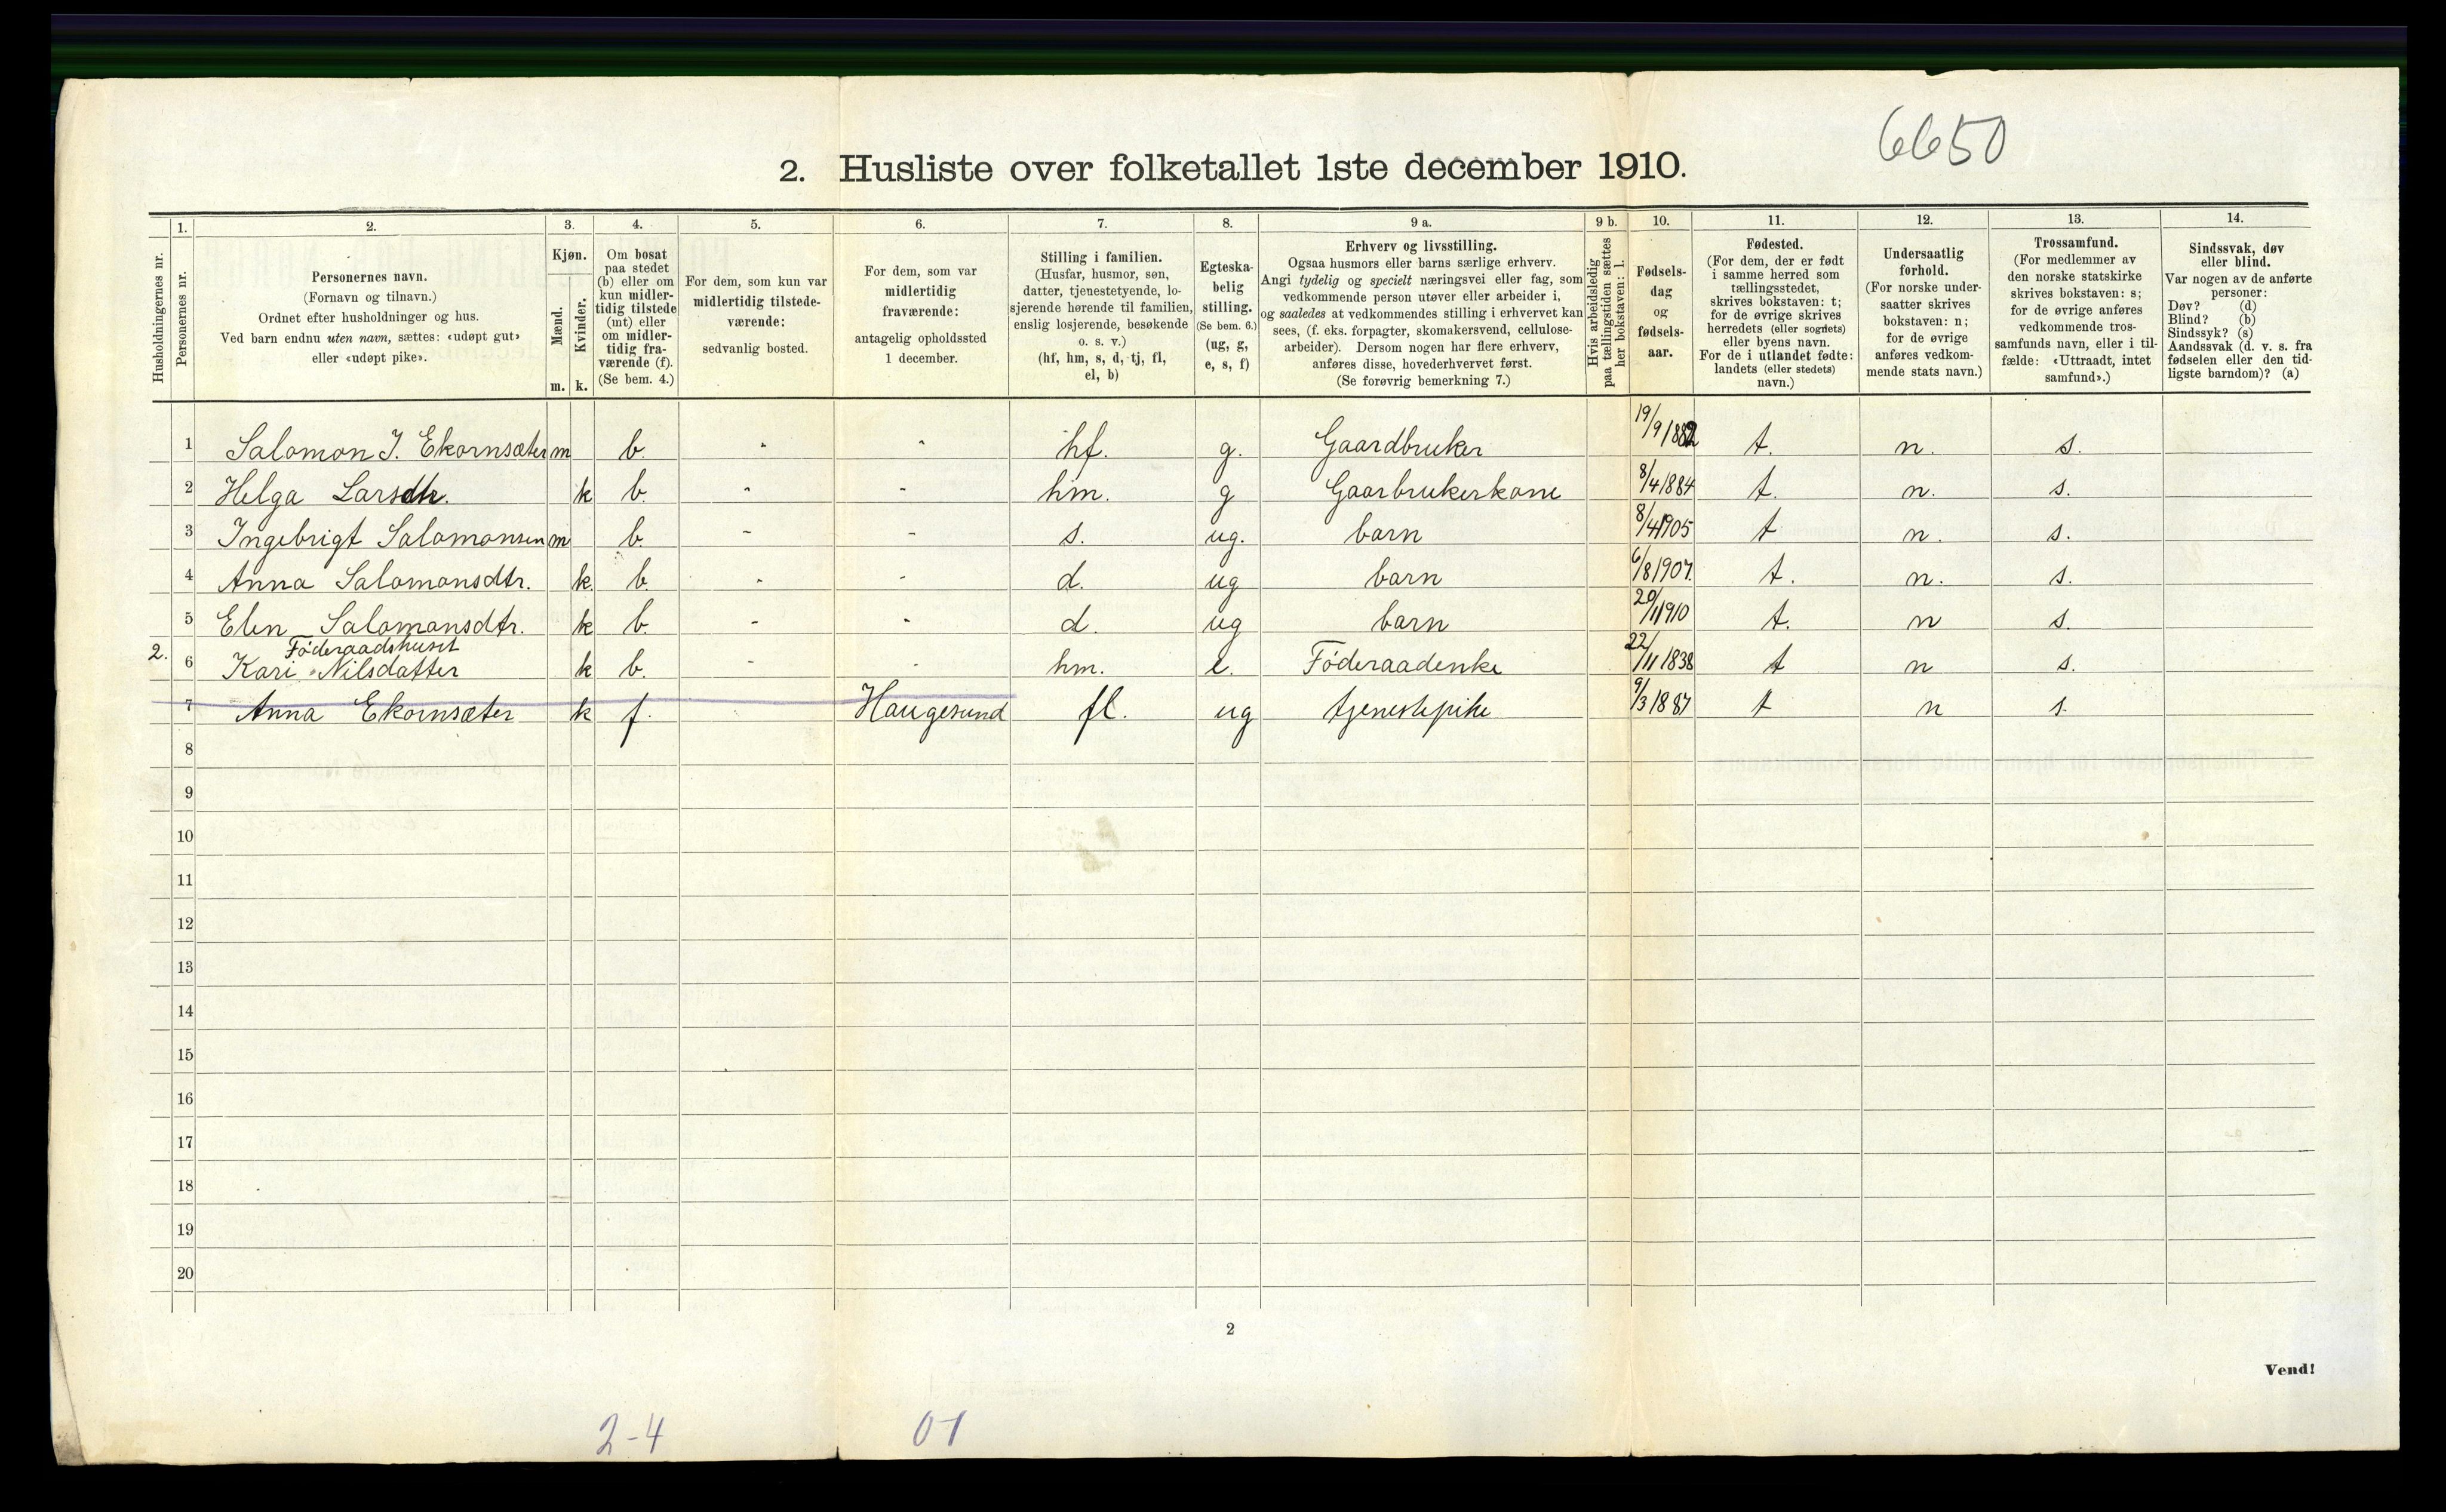 6650
2. Husliste over folketallet 1ste december 1910.
Husholdningernes nr.
1. Personernes nr.
2. Personernes navn.
(Fornavn og tilnavn.)
Ordnet efter husholdninger og hus.
Ved barn endnu uten navn, sættes: «udøpt gut»
eller «udøpt pike».
3. Kjøn.
Mænd. m.
Kvinder. k.
4. Om bosat
paa stedet
(b) eller om
kun midler-
tidig tilstede
(mt) eller
om midler-
tidig fra-
værende (f).
(Se bem. 4.)
5. For dem, som kun var
midlertidig tilstede-
værende:
sedvanlig bosted.
6. For dem, som var
midlertidig
fraværende:
antagelig opholdssted
1 december.
7. Stilling i familien.
(Husfar, husmor, søn,
datter, tjenestetyende, lo-
sjerende hørende til familien,
enslig losjerende, besøkende
o. s. v.)
(hf, hm, s, d, tj, fl,
el, b)
8. Egteska-
belig
stilling.
(Se bem. 6.)
(ug, g,
e, s, f)
9 a. Erhverv og livsstilling.
Ogsaa husmors eller barns særlige erhverv.
Angi tydelig og specielt næringsvei eller fag, som
vedkommende person utøver eller arbeider i,
og saaledes at vedkommendes stilling i erhvervet kan
sees, (f. eks. forpagter, skomakersvend, cellulose-
arbeider). Dersom nogen har flere erhverv,
anføres disse, hovederhvervet først.
(Se forøvrig bemerkning 7.)
9 b. Hvis arbeidsledig
paa tællingstiden sættes
her bokstaven: l.
10. Fødsels-
dag
og
fødsels-
aar.
11. Fødested.
(For dem, der er født
i samme herred som
tællingsstedet,
skrives bokstaven: t;
for de øvrige skrives
herredets (eller sognets)
eller byens navn.
For de i utlandet fødte:
landets (eller stedets)
navn.)
12. Undersaatlig
forhold.
(For norske under-
saatter skrives
bokstaven: n;
for de øvrige
anføres vedkom-
mende stats navn.)
13. Trossamfund.
(For medlemmer av
den norske statskirke
skrives bokstaven: s;
for de øvrige anføres
vedkommende tros-
samfunds navn, eller i til-
fælde: «Uttraadt, intet
samfund».)
14. Sindssvak, døv
eller blind.
Var nogen av de anførte
personer:
Døv? (d)
Blind? (b)
Sindssyk? (s)
Aandssvak (d. v. s. fra
fødselen eller den tid-
ligste barndom)? (a)
1 Salomon J. Ekornsæter m b. - - hf. g. Gaardbruker 19/9 1882 t. n. s.
2 Helga Larsdtr. k b. - - hm. g Gaarbrukerkone 8/4 1884 t. n. s.
3 Ingebrigt Salomonsen m b. - - s. ug. barn 8/4 1905 t n. s.
4 Anna Salomonsdtr. k. b. - - d. ug barn 6/8 1907. t. n. s.
5 Elen Salomonsdtr. k b. - - d. ug barn 20/1 1910 t. n s.
Föderaadshuset
2. 6 Kari Nilsdatter k b. - - hm. e. Föderaadenke 22/11 1838 t n s.
7 Anna Ekornsæter k f. Haugesund fl. ug tjenestepike 9/3 1887 t n s.
8
9
10
11
12
13
14
15
16
17
18
19
20
2
Vend!
2-4 01